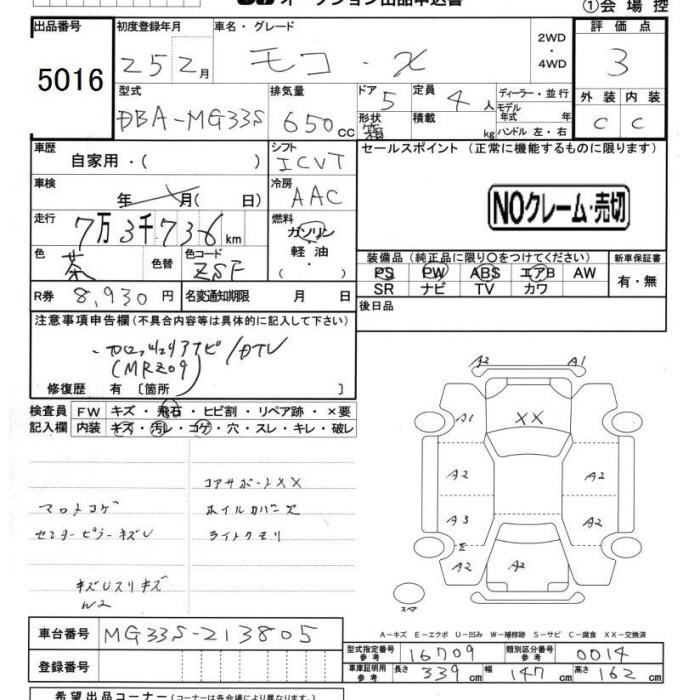 オークション出品申込書
①会場控
出品番号 初度登録年月 車名・グレード 2WD・4WD 評価点
5016 25 2月 モコ・X 3
型式 排気量 ドア 定員 ディーラー・並行
DBA-MG33S 650cc 5 4人 モデル年式 年
形状 箱 積載 kg ハンドル 左・右
外装 内装
C C
車歴 自家用・( ) シフト ICVT セールスポイント (正常に機能するものに限ります)
車検 年 月( 日) 冷房 AAC
NOクレーム・売切
走行 7万3千736km 燃料 ガソリン・軽油・( )
色 茶 色替 色コード ZSF
装備品 (純正品に限り○をつけてください) 新車保証書
PS PW ABS エアB AW 有・無
SR ナビ TV カワ
R券 8,930円 名変通知期限 月 日
後日品
注意事項申告欄(不具合内容等は具体的に記入して下さい)
ナビ/DTV
(MRZ09)
修復歴 有 [箇所 ]
検査員 FW キズ・飛石・ヒビ割・リペア跡・×要
記入欄 内装 キズ・汚レ・コゲ・穴・スレ・キレ・破レ
コアサポートXX
マットコゲ ホイルカバー欠
センターピラーキズU ライトクモリ
キズUスリキズ
W2
A2 A1
A1 XX
A2 A2
A3 A2
E
A2 A2
スペア
A-キズ E-エクボ U-凹み W-補修跡 S-サビ C-腐食 XX-交換済
車台番号 MG33S-213805
型式指定番号 参考 16709 類別区分番号 参考 0014
登録番号
車庫証明用 参考 長さ 339cm 幅 147cm 高さ 162cm
希望出品コーナー(コーナーは各会場により異なります)